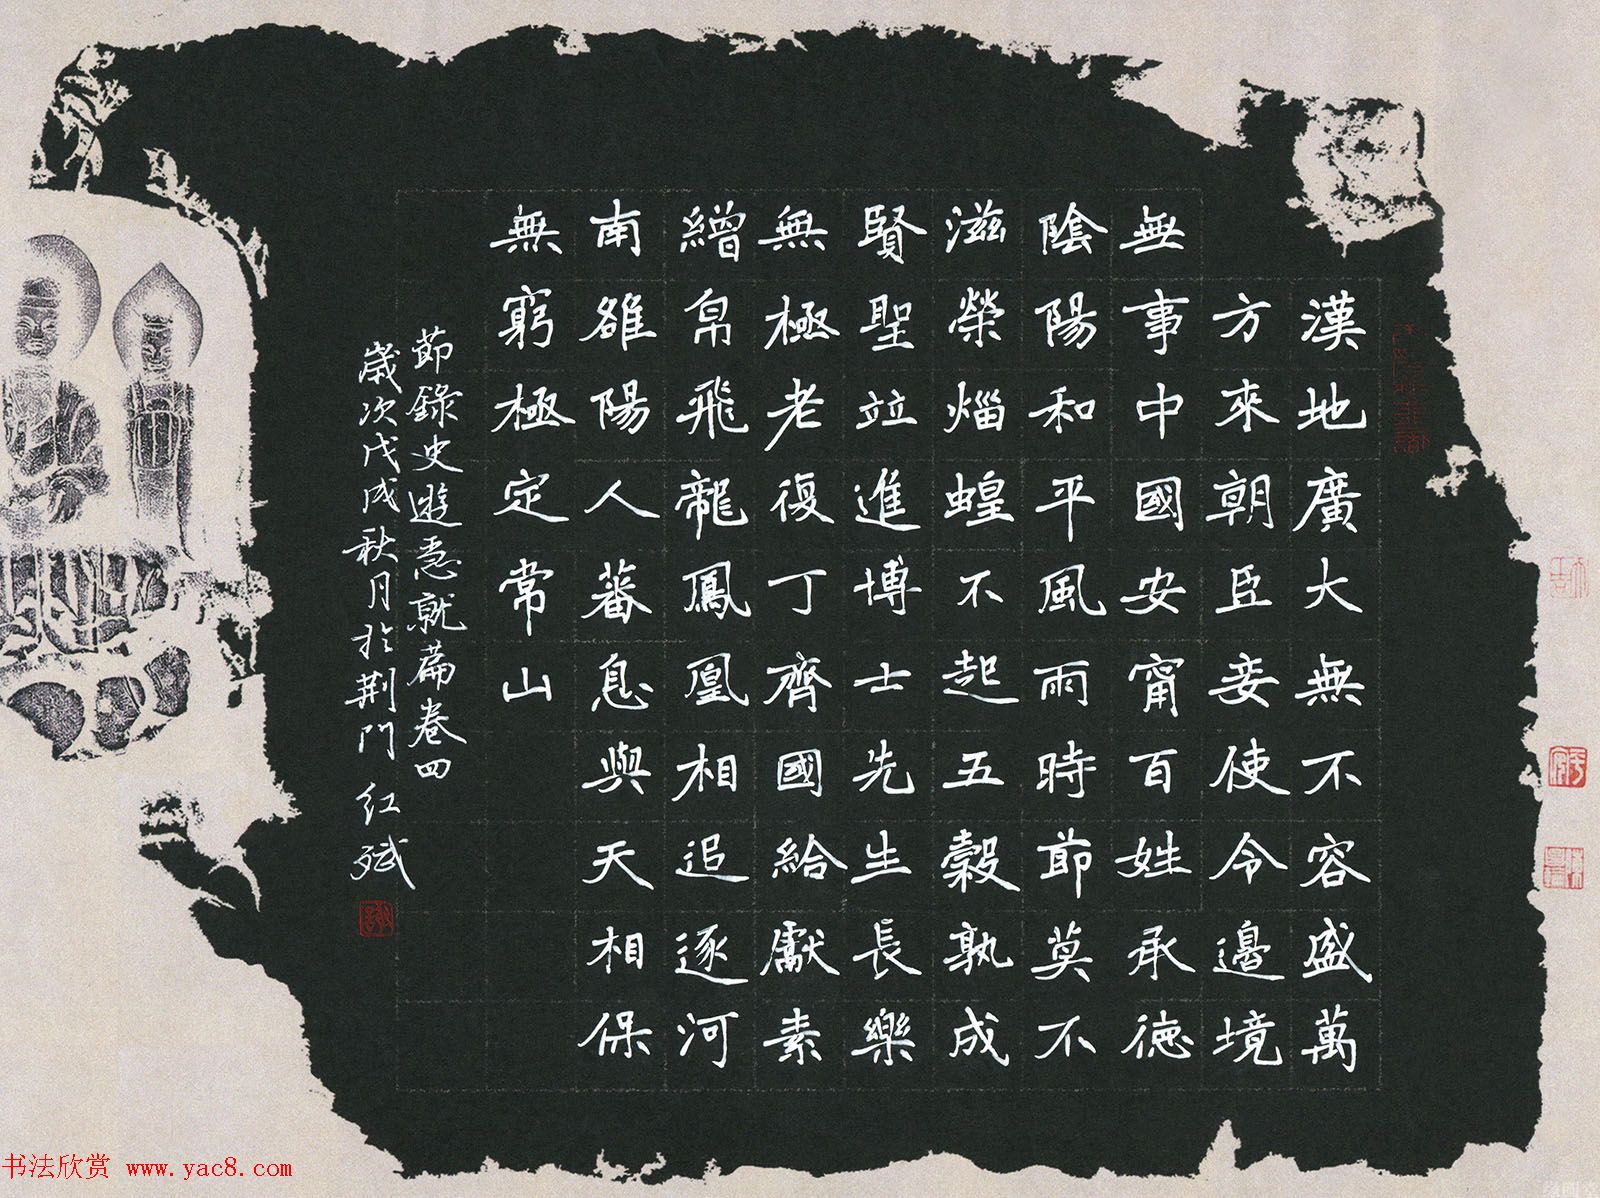 漢地廣大無不容盛萬
方來朝臣妾使令邊境
無事中國安甯百姓承德
陰陽和平風雨時節莫不
滋榮烖蝗不起五穀孰成
賢聖竝進博士先生長樂
無極老復丁齊國給獻素
繒帛飛龍鳳凰相追逐河
南雒陽人蕃息與天相保
無窮極定常山
節錄史遊急就篇卷四
歲次戊戌秋月於荊門 红斌
书法欣赏 www.yac8.com